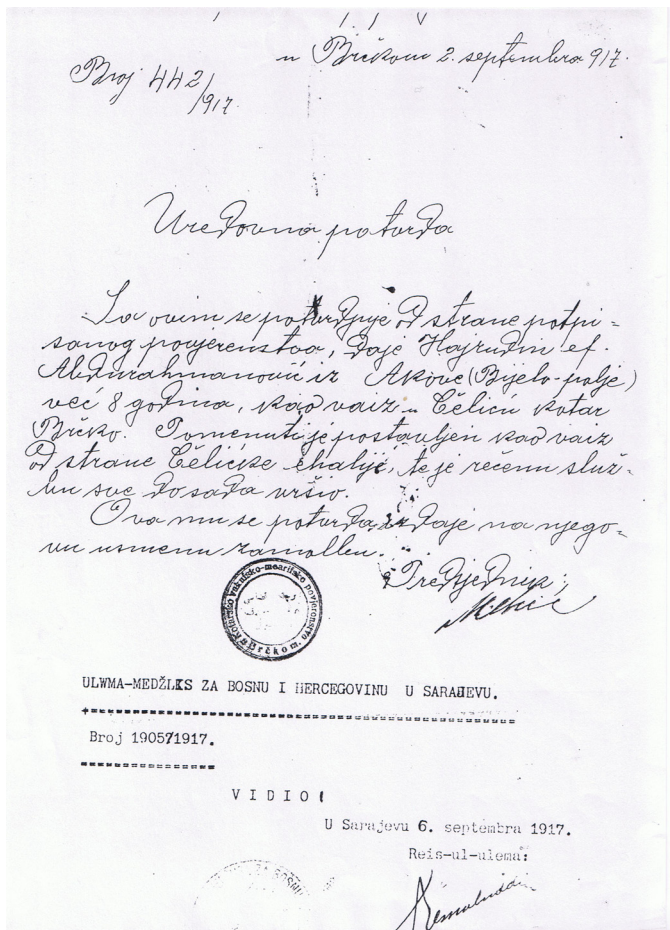 u Brčkom 2. septembra 917.
Broj 442/917
Uredovna potvrda
Sa ovim se potvrdjuje od strane potpi-
sanog povjerenstva, daje Hajrudin ef.
Abdurahmanović iz Akove (Bijelo-polje)
već 8 godina, kao vaiz u Čeliću kotar
Brčko. Pomenuti je postavljen kao vaiz
od strane Čelićke ehalije, te je rečenu služ-
bu sve do sada vršio.
Ova mu se potvrda izdaje na njego-
vu usmenu zamolbu.
Predsjednik,
Kotarsko vakufsko-mearifsko povjerenstvo
u Brčkom.
ULWMA-MEDŽLKS ZA BOSNU I HERCEGOVINU U SARAJEVU.
Broj 19057/1917.
VIDIO!
U Sarajevu 6. septembra 1917.
Reis-ul-ulema:
ZA BOSNU